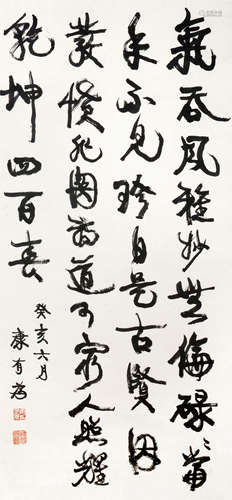 氣吞風雅妙無倫碌〻當
年不見珍自是古賢因
發憤非關詩道可窮人照耀
乾坤四百春
癸亥六月
康有為